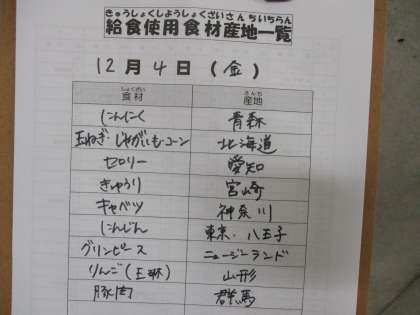 きゅうしょくしようしょくざいさんちいちらん
給食使用食材産地一覧
12月4日(金)
しょくざい さんち
食材 産地
にんにく 青森
玉ねぎ・じゃがいも・コーン 北海道
セロリー 愛知
きゅうり 宮崎
キャベツ 神奈川
にんじん 東京・八王子
グリンピース ニュージーランド
りんご(王林) 山形
豚肉 群馬